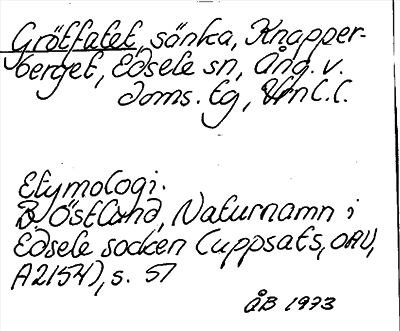 Grötfatet, sänka, Knapper-
berget, Edsele sn, Ång. v.
Doms. tg, Vrnl.l.
Etymologi.
B. Östlund, Naturnamn i
Edsele socken (uppsats, OAU,
A2154), s. 57
ÅB 1973